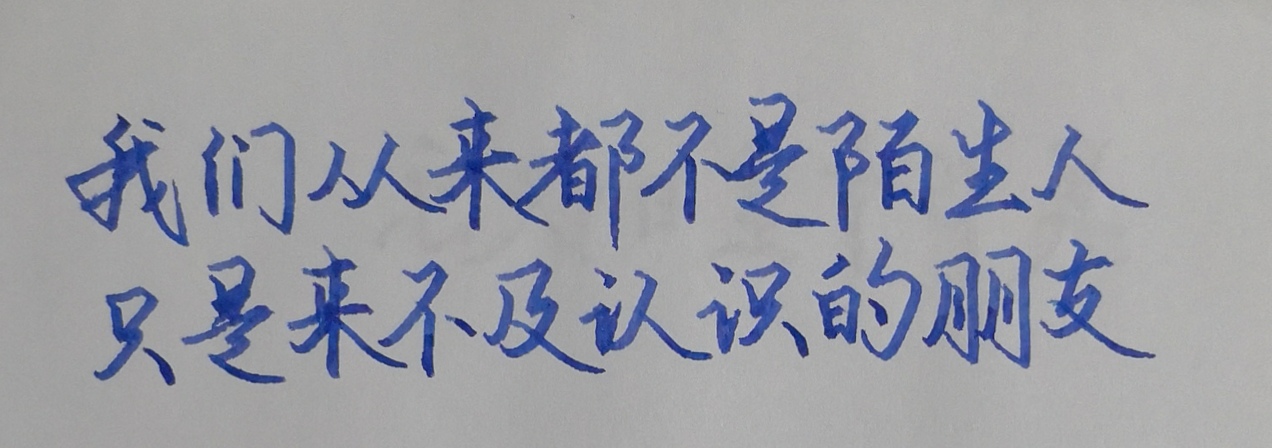 我们从来都不是陌生人
只是来不及认识的朋友